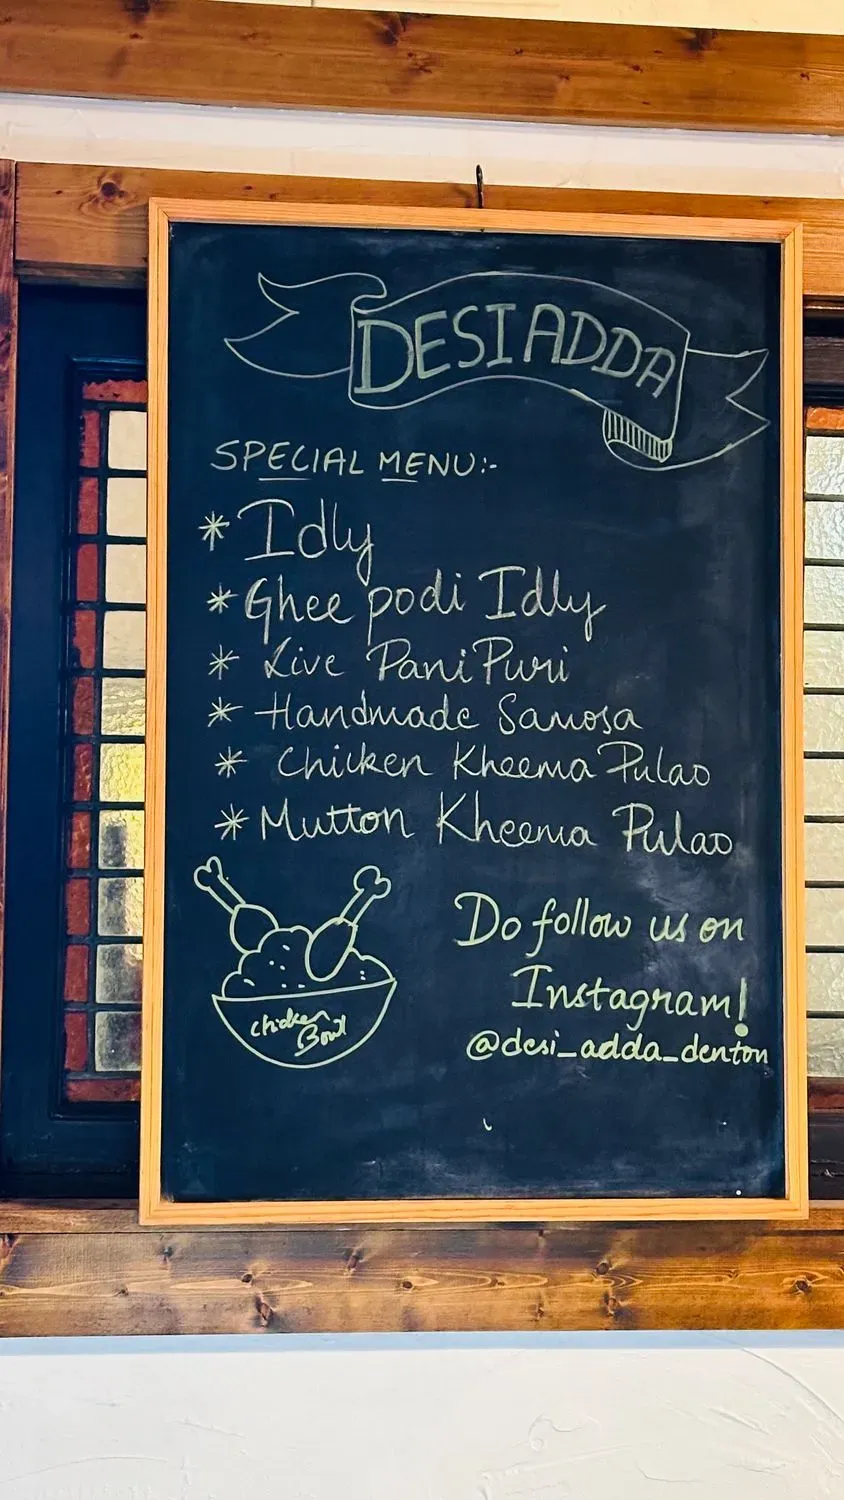 DESI ADDA
SPECIAL MENU:-
* Idly
* Ghee podi Idly
* Live Pani Puri
* Handmade Samosa
* Chicken Kheema Pulao
* Mutton Kheema Pulao
Do follow us on
Instagram!
@desi_adda_denton
Chicken
Bowl